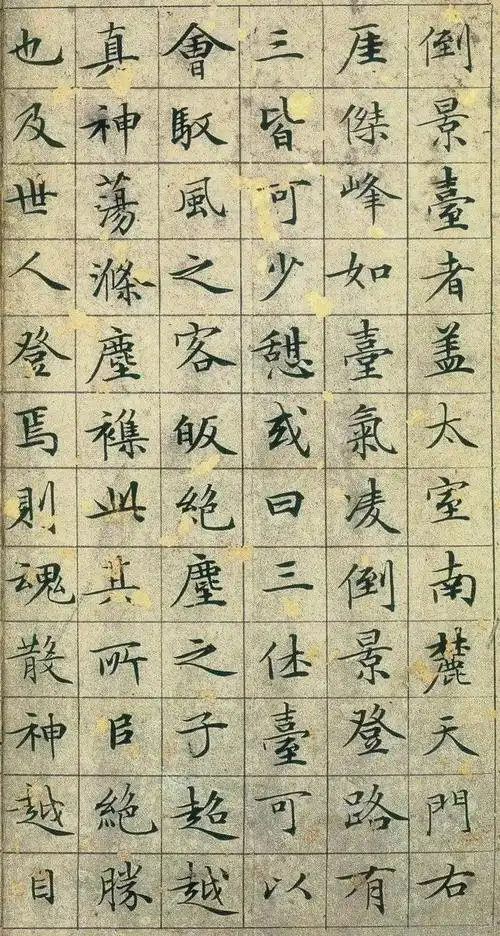 倒景臺者盖太室南麓天門右
厓傑峰如臺氣凌倒景登路有
三皆可少憩或曰三休臺可以
會馭風之客皈絕塵之子超越
真神蕩滌塵襍此其所臣絕勝
也及世人登焉則魂散神越目